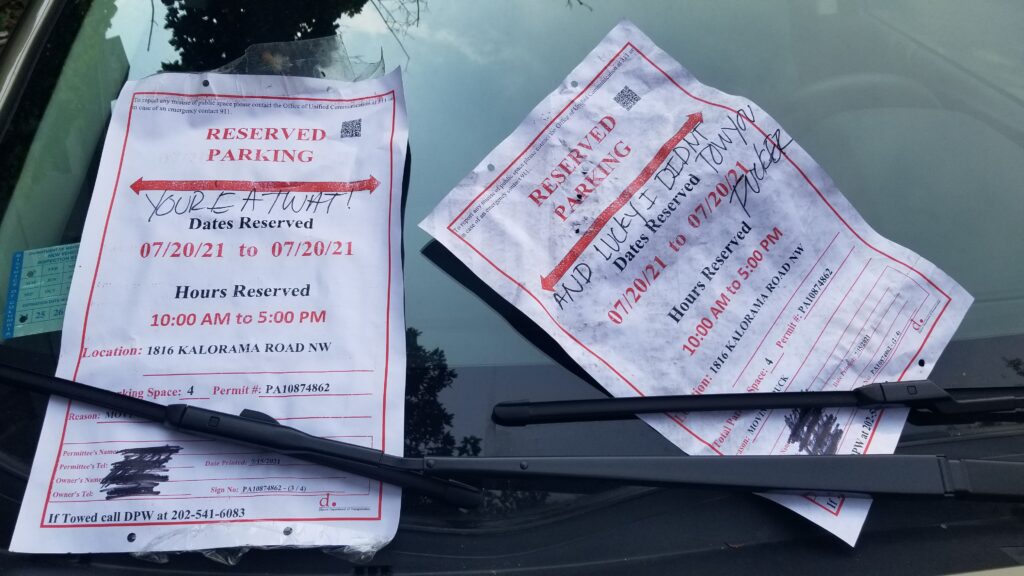 To report any misuse of public space please contact the Office of Unified Communication at 311.
In case of an emergency contact 911.
RESERVED
PARKING
YOURE A TWAT!
Dates Reserved
07/20/21 to 07/20/21
Hours Reserved
10:00 AM to 5:00 PM
Location: 1816 KALORAMA ROAD NW
Parking Space: 4 Permit #: PA10874862
Reason:
Permittee's Name
Permittee's Tel:
Owner's Name
Owner's Tel:
Date Printed: 7/15/2021
Sign No: PA10874862 - (3 / 4)
d.
If Towed call DPW at 202-541-6083
To report any misuse of public space please contact the Office of Unified Communication at 311.
In case of an emergency contact 911.
RESERVED
PARKING
AND LUCKY I DIDNT TOW YOU
FUCKER
Dates Reserved
07/20/21 to 07/20/21
Hours Reserved
10:00 AM to 5:00 PM
1816 KALORAMA ROAD NW
Space: 4 Permit #: PA10874862
d.
DPW at 202-54
If
25 26